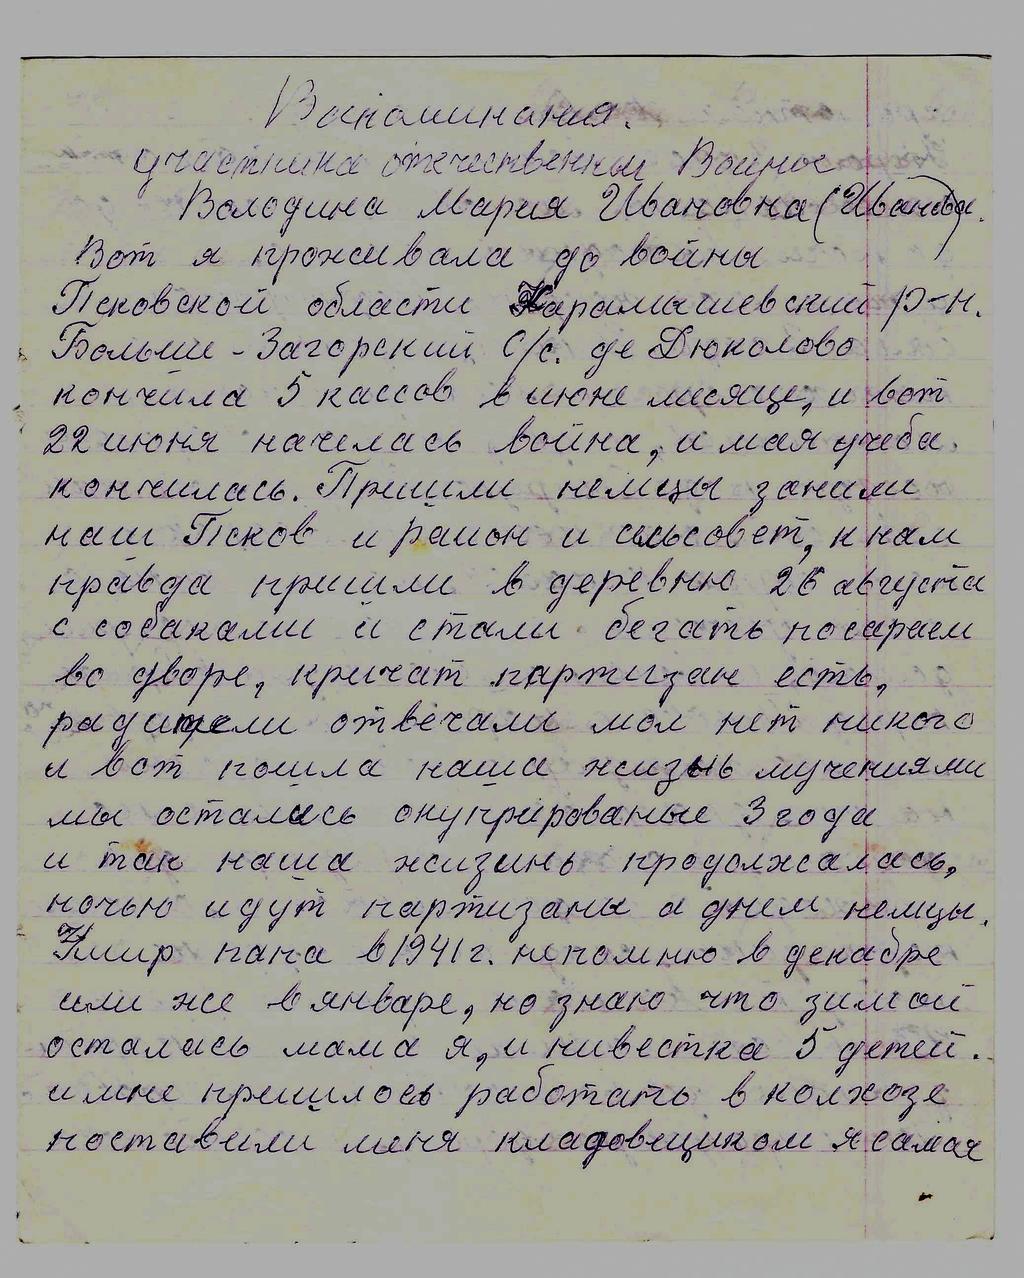 Воспоминания.
участника отечественны Войны
Володина Мария Ивановна (Иванова.
Вот я проживала до войны
Псковской области Карамышевский р-н.
Больше-Загорский с/с. де Дюколово
кончила 5 кассов в июне месяце, и вот
22 июня началась война, и мая учеба
кончилась. Пришли немцы заняли
наш Псков и район и сельсовет, к нам
правда пришли в деревню 26 августа
с собаками и стали бегать посараем
во дворе, кричат партизан есть,
радители отвечали мол нет никого
и вот пошла наша жизнь мучениями
мы остались окупрированые 3 года
и так наша жизинь продолжалась,
ночью идут партизаны а днем немцы.
Умир папа в 1941г. непомню в декабре
или же в январе, но знаю что зимой
осталась мама я, и нивестка 5 детей.
и мне пришлось работать в колхозе
поставили меня кладовщиком я самая